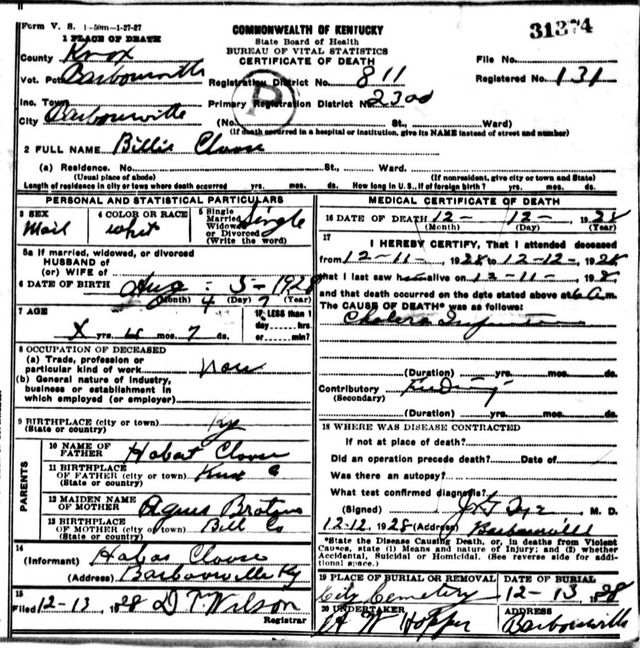 Form V. S. 1-50m-1-27-27
COMMONWEALTH OF KENTUCKY
31374
1 PLACE OF DEATH
State Board of Health
BUREAU OF VITAL STATISTICS
CERTIFICATE OF DEATH
County Knox
File No.
Vot. Pct. Barbourville
Registration District No. 811
Registered No. 131
Inc. Town
Primary Registration District No. 2300
City Barbourville
(No. St., Ward)
(If death occurred in a hospital or institution, give its NAME instead of street and number)
2 FULL NAME Billie Cloose
(a) Residence. No. St., Ward.
(Usual place of abode) (If nonresident, give city or town and State)
Length of residence in city or town where death occurred yrs. mos. ds. How long in U. S., if of foreign birth? yrs. mos. ds.
PERSONAL AND STATISTICAL PARTICULARS
3 SEX
Mail
4 COLOR OR RACE
whit
5 Single
Married
Widowed
or Divorced
(Write the word)
Single
5a If married, widowed, or divorced
HUSBAND of
(or) WIFE of
6 DATE OF BIRTH Aug - 5 - 1928
(Month) (Day) (Year)
4 7
7 AGE
X yrs. 4 mos. 7 ds.
If LESS than 1
day hrs.
or min?
8 OCCUPATION OF DECEASED
(a) Trade, profession or
particular kind of work
(b) General nature of industry,
business or establishment in
which employed (or employer)
9 BIRTHPLACE (city or town) Ky
(State or country)
PARENTS
10 NAME OF
FATHER Hobart Cloose
11 BIRTHPLACE
OF FATHER (city or town) Knox C
(State or country)
12 MAIDEN NAME
OF MOTHER Agnus
13 BIRTHPLACE
OF MOTHER (city or town) Bill Co
(State or country)
14
(Informant) Hobas Cloose
(Address) Barbourville Ky
15
Filed 12-13 1928 D T Wilson
Registrar
MEDICAL CERTIFICATE OF DEATH
16 DATE OF DEATH 12- 12- 1928
(Month) (Day) (Year)
17
I HEREBY CERTIFY, That I attended deceased
from 12-11- 1928 to 12-12- 1928
that I last saw h alive on 12-11- 1928
and that death occurred on the date stated above at 6 a m.
The CAUSE OF DEATH* was as follows:
Cholera Infantum
(Duration) yrs. mos. ds.
Contributory Feeding
(Secondary)
(Duration) yrs. mos. ds.
18 WHERE WAS DISEASE CONTRACTED
If not at place of death?
Did an operation precede death? Date of
Was there an autopsy?
What test confirmed diagnosis?
(Signed) M. D.
12-12 1928 (Address) Barbourville
*State the Disease Causing Death, or, in deaths from Violent
Causes, state (1) Means and nature of Injury; and (2) whether
Accidental, Suicidal or Homicidal. (See reverse side for addi-
tional space.)
19 PLACE OF BURIAL OR REMOVAL
City Cemetery
DATE OF BURIAL
12-13 1928
20 UNDERTAKER
H W Hopper
ADDRESS
Barbourville